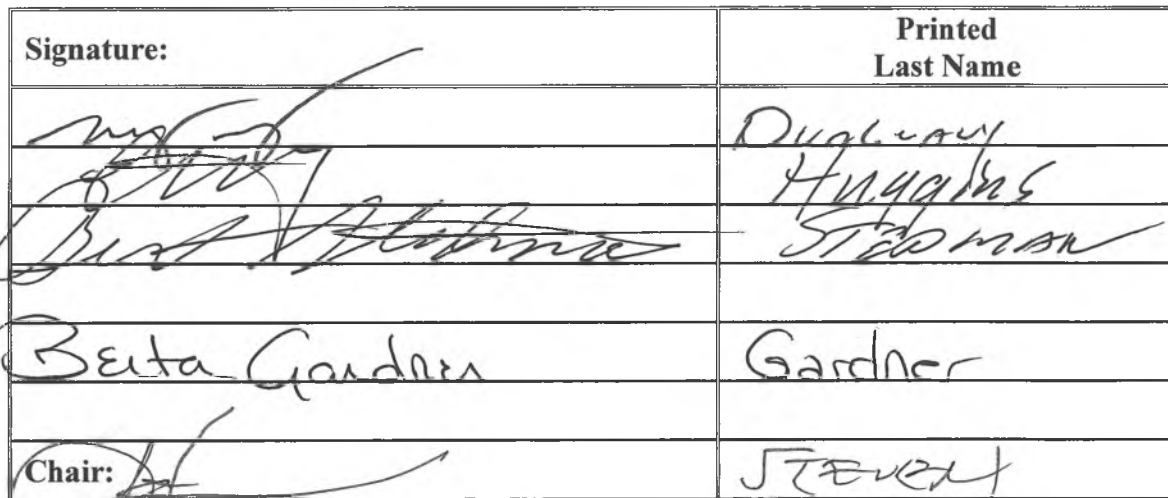 Signature: Printed
Last Name
Dunleavy
Huggins
Bert Stedman STEDMAN
Berta Gardner Gardner
Chair: STEVENS